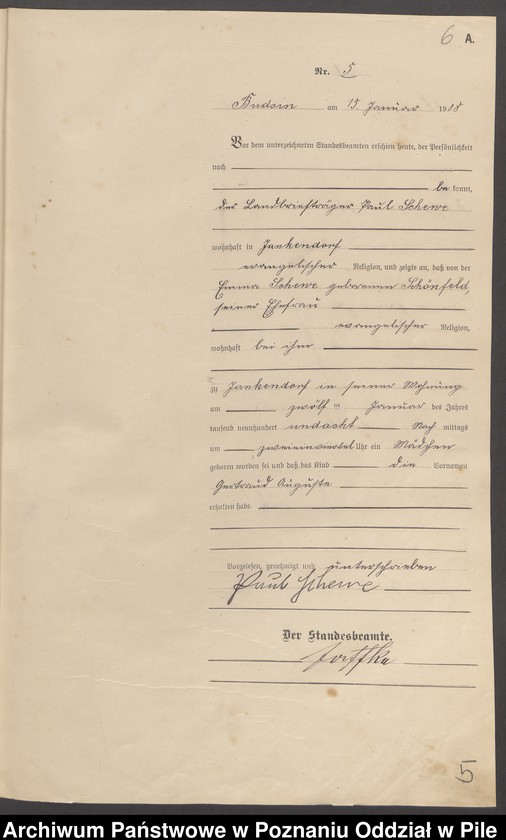 6 A.
Nr. 5
Budsin am 15. Januar 1908
Vor dem unterzeichneten Standesbeamten erschien heute, der Persönlichkeit
nach
be kannt,
der Landbriefträger Paul Schewe
wohnhaft in Jankendorf
evangelischer Religion, und zeigte an, daß von der
Emma Schewe geborenen Schönfeld,
seiner Ehefrau
evangelischer Religion,
wohnhaft bei ihm
zu Jankendorf in seiner Wohnung
am zwölf ten Januar des Jahres
tausend neunhundert undacht Nach mittags
um zweieinviertel Uhr ein Mädchen
geboren worden sei und daß das Kind die Vornamen
Gertraud Auguste
erhalten habe.
Vorgelesen, genehmigt und unterschrieben
Paul Schewe
Der Standesbeamte.
5
Archiwum Państwowe w Poznaniu Oddział w Pile